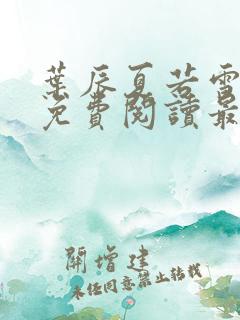 葉辰夏若雪
免費閱讀最
開增建
未经同意禁止转载